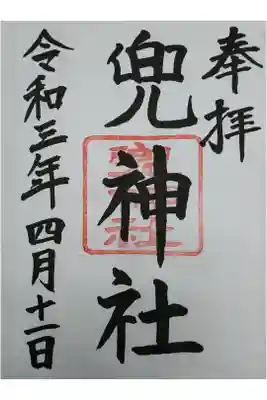 奉拝
兜神社
令和三年四月十一日